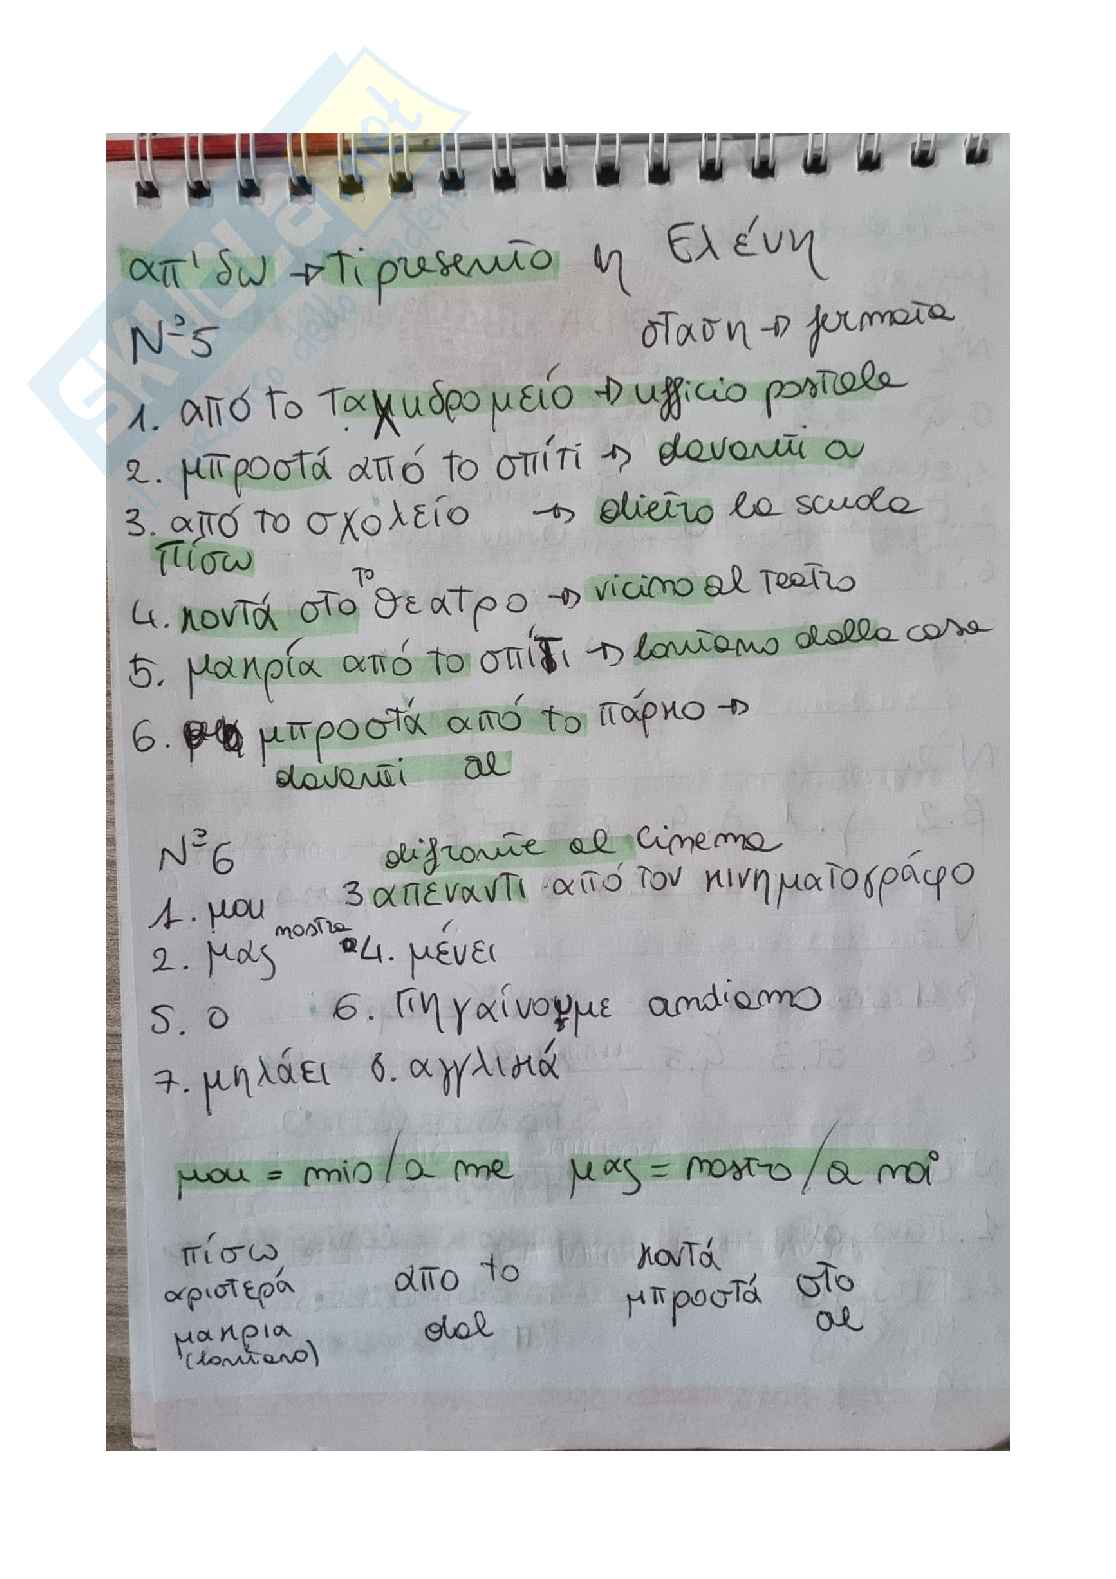 απ' δω → Ti presento η Ελένη
N°5 σταση → fermata
1. από το ταχυδρομείο → ufficio postale
2. μπροστά από το σπίτι → davanti a
3. από το σχολείο → dietro la scuola
πίσω
4. κοντά στο το θέατρο → vicino al teatro
5. μακρία από το σπίτι → lontano dalla casa
6. μπροστά από το πάρκο →
davanti al
N°6 difronte al cinema
1. μου 3 απεναντι από τον κινηματογράφο
2. μας nostro 4. μένει
5. ο 6. πηγαίνουμε andiamo
7. μηλάει 8. αγγλικά
μου = mio/a me μας = nostro/a noi
πίσω κοντά
αριστερά απο το μπροστά στο
μακρια dal al
(lontano)